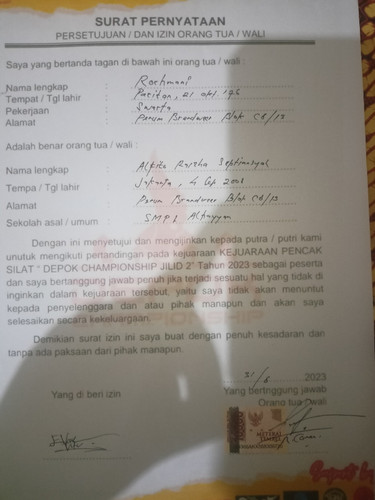 SURAT PERNYATAAN
PERSETUJUAN / DAN IZIN ORANG TUA / WALI
Saya yang bertanda tagan di bawah ini orang tua / wali :
Nama lengkap : Rochmani
Tempat / Tgl lahir : Pacitan, 21
Pekerjaan : Swasta
Alamat : Perum Blok C6/13
Adalah benar orang tua / wali :
Nama lengkap :
Tempa / Tgl lahir : Jakarta, 4
Alamat : Perum Blok C6/13
Sekolah asal / umum : SMP
Dengan ini menyetujui dan mengijinkan kepada putra / putri kami
unutuk mengikuti pertandingan pada kejuaraan KEJUARAAN PENCAK
SILAT " DEPOK CHAMPIONSHIP JILID 2" Tahun 2023 sebagai peserta
dan saya bertanggung jawab penuh jika terjadi sesuatu hal yang tidak di
inginkan dalam kejuaraan tersebut, yaitu saya tidak akan menuntut
kepada penyelenggara dan atau pihak manapun dan akan saya
selesaikan secara kekeluargaan.
Demikian surat izin ini saya buat dengan penuh kesadaran dan
tanpa ada paksaan dari pihak manapun.
2023
Yang di beri izin
Yang bertnggung jawab
Orang tua /wali
METERAI
TEMPEL